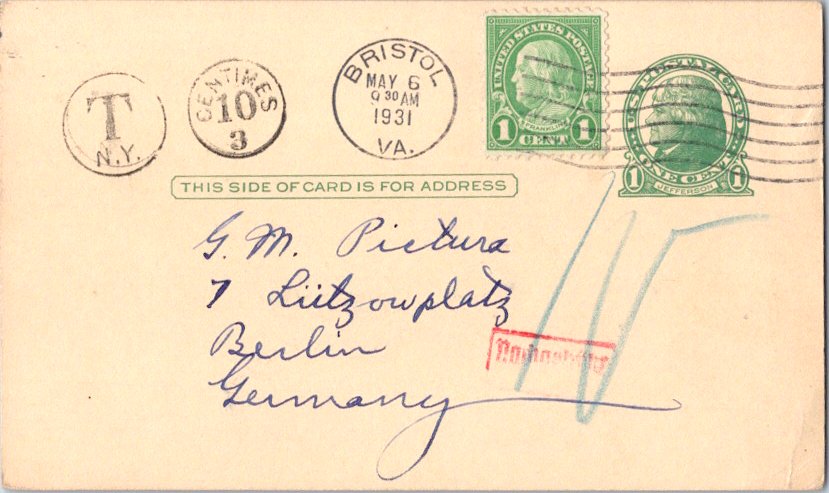 T
N.Y.
CENTIMES
10
3
BRISTOL
MAY 6
9 30 AM
1931
VA.
UNITED STATES POSTAGE
FRANKLIN
1 CENT 1
U.S. POSTAL CARD
1 ONE CENT 1
JEFFERSON
THIS SIDE OF CARD IS FOR ADDRESS
G. M. Pictura
7 Lützowplatz
Berlin
Germany